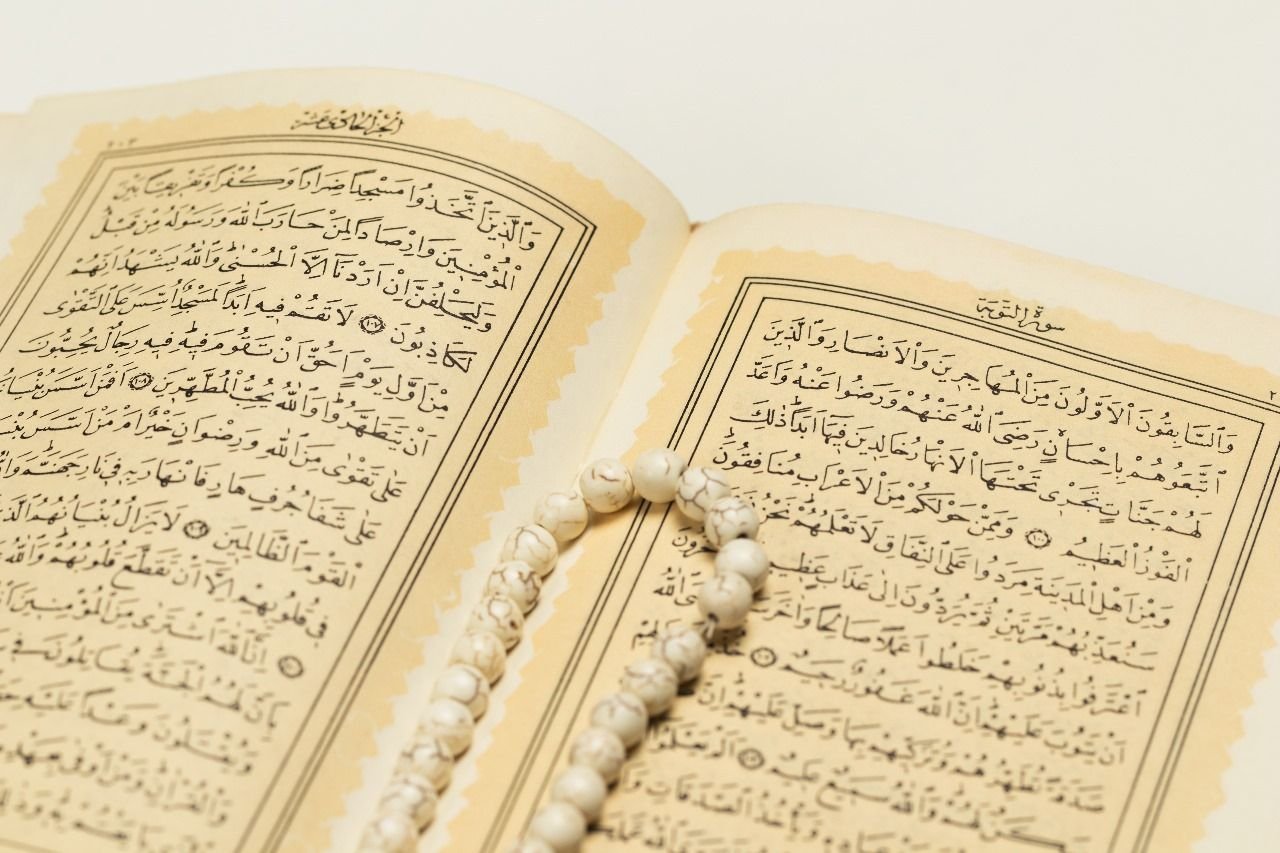 سورة التوبة
وَالسَّابِقُونَ الْاَوَّلُونَ مِنَ الْمُهَاجِرِينَ وَالْاَنْصَارِ وَالَّذِينَ
اتَّبَعُوهُمْ بِاِحْسَانٍ رَضِىَ اللّٰهُ عَنْهُمْ وَرَضُوا عَنْهُ وَاَعَدَّ
لَهُمْ جَنَّاتٍ تَجْرِى تَحْتَهَا الْاَنْهَارُ خَالِدِينَ فِيهَا اَبَدًا ذٰلِكَ
الْفَوْزُ الْعَظِيمُ ﴿١٠٠﴾ وَمِمَّنْ حَوْلَكُمْ مِنَ الْاَعْرَابِ مُنَافِقُونَ
وَمِنْ اَهْلِ الْمَدِينَةِ مَرَدُوا عَلَى النِّفَاقِ لَا تَعْلَمُهُمْ نَحْنُ
سَنُعَذِّبُهُمْ مَرَّتَيْنِ ثُمَّ يُرَدُّونَ اِلٰى عَذَابٍ عَظِيمٍ
اعْتَرَفُوا بِذُنُوبِهِمْ خَلَطُوا عَمَلًا صَالِحًا وَاٰخَرَ
اَنْ يَتُوبَ عَلَيْهِمْ اِنَّ اللّٰهَ غَفُورٌ رَحِيمٌ
صَدَقَةً تُطَهِّرُهُمْ وَتُزَكِّيهِمْ بِهَا وَصَلِّ عَلَيْهِمْ اِنَّ
سَكَنٌ لَهُمْ وَاللّٰهُ سَمِيعٌ عَلِيمٌ
وَيَأْخُذُ الصَّدَقَاتِ
الجزء الحادي عشر
٢٠٣
وَالَّذِينَ اتَّخَذُوا مَسْجِدًا ضِرَارًا وَكُفْرًا وَتَفْرِيقًا بَيْنَ
الْمُؤْمِنِينَ وَاِرْصَادًا لِمَنْ حَارَبَ اللّٰهَ وَرَسُولَهُ مِنْ قَبْلُ
وَلَيَحْلِفُنَّ اِنْ اَرَدْنَا اِلَّا الْحُسْنٰى وَاللّٰهُ يَشْهَدُ اِنَّهُمْ
لَكَاذِبُونَ ﴿١٠٧﴾ لَا تَقُمْ فِيهِ اَبَدًا لَمَسْجِدٌ اُسِّسَ عَلَى التَّقْوٰى
مِنْ اَوَّلِ يَوْمٍ اَحَقُّ اَنْ تَقُومَ فِيهِ فِيهِ رِجَالٌ يُحِبُّونَ
اَنْ يَتَطَهَّرُوا وَاللّٰهُ يُحِبُّ الْمُطَّهِّرِينَ ﴿١٠٨﴾ اَفَمَنْ اَسَّسَ بُنْيَانَهُ
عَلٰى تَقْوٰى مِنَ اللّٰهِ وَرِضْوَانٍ خَيْرٌ اَمْ مَنْ اَسَّسَ
عَلٰى شَفَا جُرُفٍ هَارٍ فَانْهَارَ بِهِ فِى نَارِ جَهَنَّمَ
الْقَوْمَ الظَّالِمِينَ ﴿١٠٩﴾ لَا يَزَالُ بُنْيَانُهُمُ
فِى قُلُوبِهِمْ اِلَّا اَنْ تَقَطَّعَ قُلُوبُهُمْ وَاللّٰهُ
اِنَّ اللّٰهَ اشْتَرٰى مِنَ الْمُؤْمِنِينَ
بِاَنَّ لَهُمُ الْجَنَّةَ يُقَاتِلُونَ فِى
وَيُقْتَلُونَ وَعْدًا عَلَيْهِ
وَالْقُرْاٰنِ وَمَنْ اَوْفٰى بِعَهْدِهِ